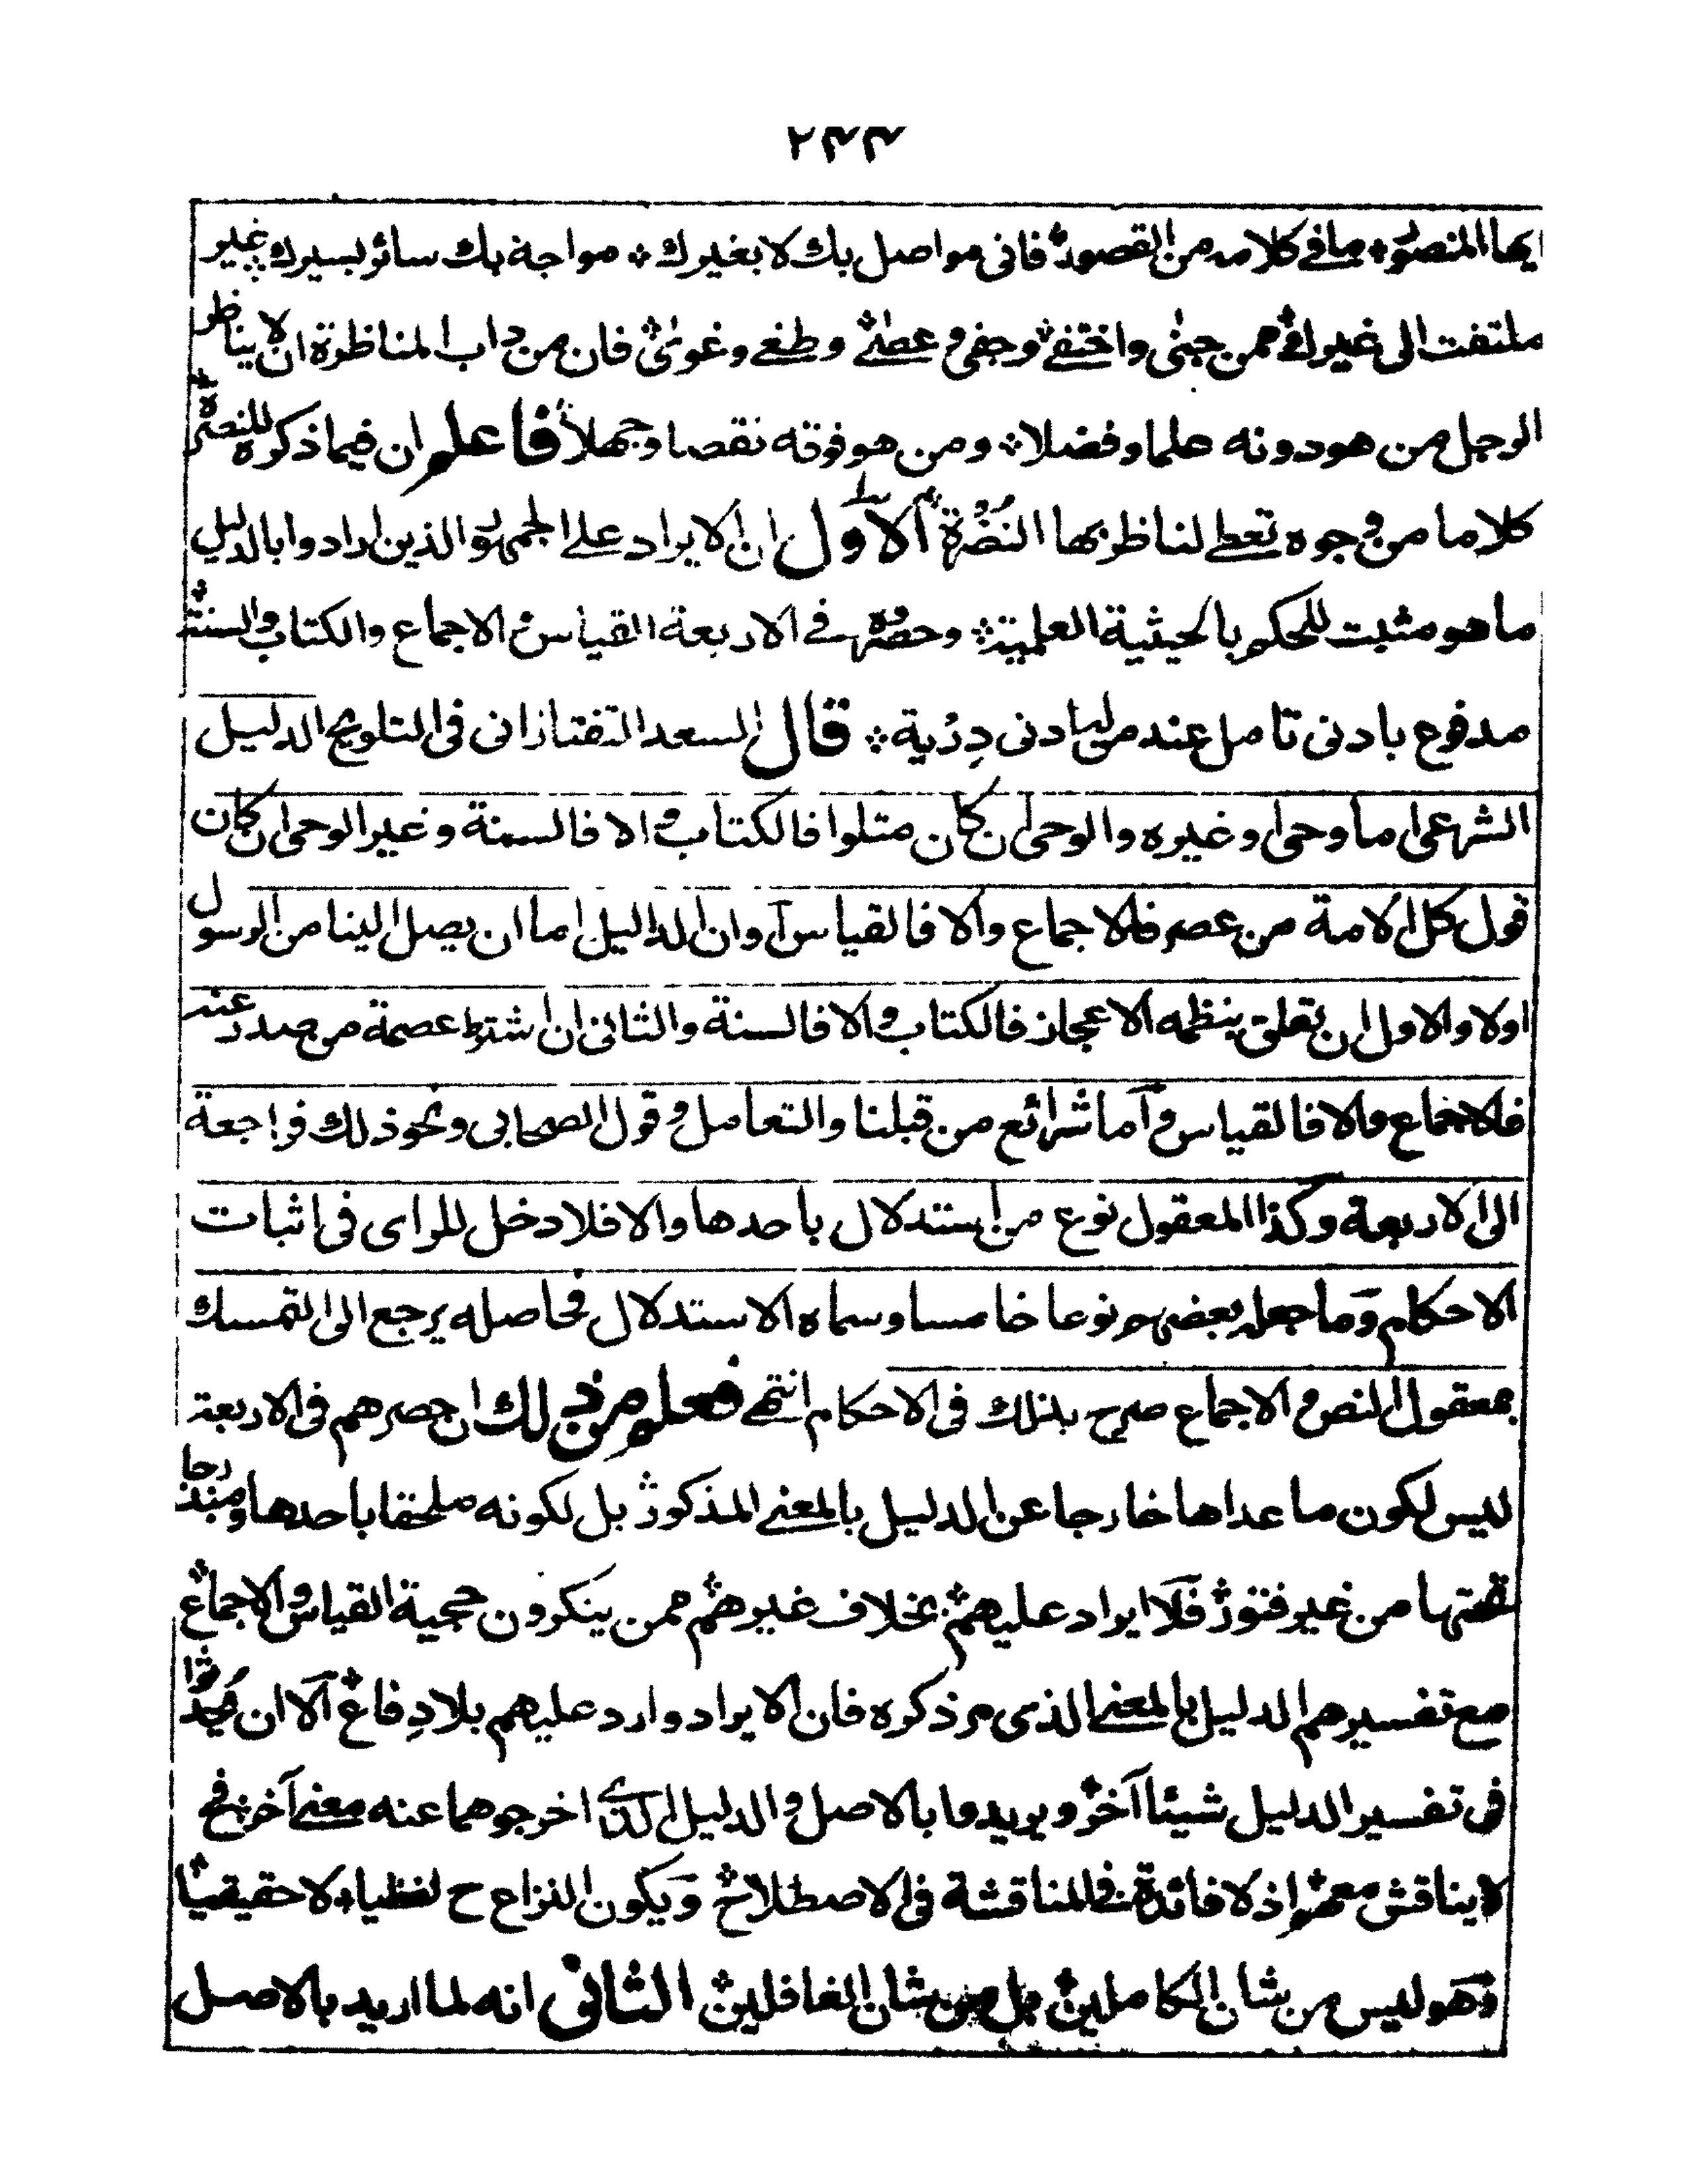 ٢٤٤
ايها المنصور * ما في كلامه من القصور * فانى مواصل بك لا بغيرك * مواجهة بك سائر بسيرك * غير
ملتفت الى غيرك * ممن جنى واختفى * وجفى وعصى * وطغى وغوى * فان من داب المناظرة ان لا يناظر
الرجل من هو دونه علما وفضلا * ومن هو فوقه نقصا وجهلا * فاعلم ان فيما ذكره للنصرة
كلاما من وجوه تعطى لناظر بها النُضرة * الاول ان الايراد على الجمهور الذين ارادوا بالدليل
ما هو مثبت للحكم بالحيثية العلمية * وحصره فى الاربعة القياس والاجماع والكتاب والسنة *
مدفوع بادنى تامل عند من له ادنى دِرْية * قال السعد التفتازانى فى التلويح الدليل
الشرعى اما وحى او غيره والوحى ان كان متلوا فالكتاب والا فالسنة وغير الوحى ان كان
قول كل الامة من عصر فالاجماع والا فالقياس او ان الدليل اما ان يصل الينا من الرسول
اولا والاول ان تعلق بنظمه الاعجاز فالكتاب والا فالسنة والثانى ان اشترط عصمة من صدر عنه
فالاجماع والا فالقياس واما شرائع من قبلنا والتعامل وقول الصحابى ونحو ذلك فراجعة
الى الاربعة وكذا المعقول نوع من استدلال باحدها والا فلا دخل للراى فى اثبات
الاحكام وما جعله بعضهم نوعا خامسا وسماه الاستدلال فحاصله يرجع الى التمسك
بمعقول النص والاجماع صرح بذلك فى الاحكام انتهى فعلم من ذلك ان حصرهم فى الاربعة
ليس لكون ما عداها خارجا عن الدليل بالمعنى المذكور * بل لكونه ملحقا باحدها ومندرجا
تحتها من غير فتور * فلا ايراد عليهم * بخلاف غيرهم * ممن ينكرون حجية القياس والاجماع *
مع تفسيرهم الدليل بالمعنى الذى مر ذكره فان الايراد وارد عليهم بلا دِفاع * الا ان يُحدثوا
فى تفسير الدليل شيئا آخر * ويريدوا بالاصل والدليل الذى اخرجوهما عنه معنى آخر * فح
لا يناقش معهم * اذ لا فائدة فى المناقشة فى الاصطلاح * ويكون النزاع ح لفظيا * لا حقيقيا *
وهو ليس من شان الكاملين * بل من شان الغافلين * الثانى انه لما اريد بالاصل